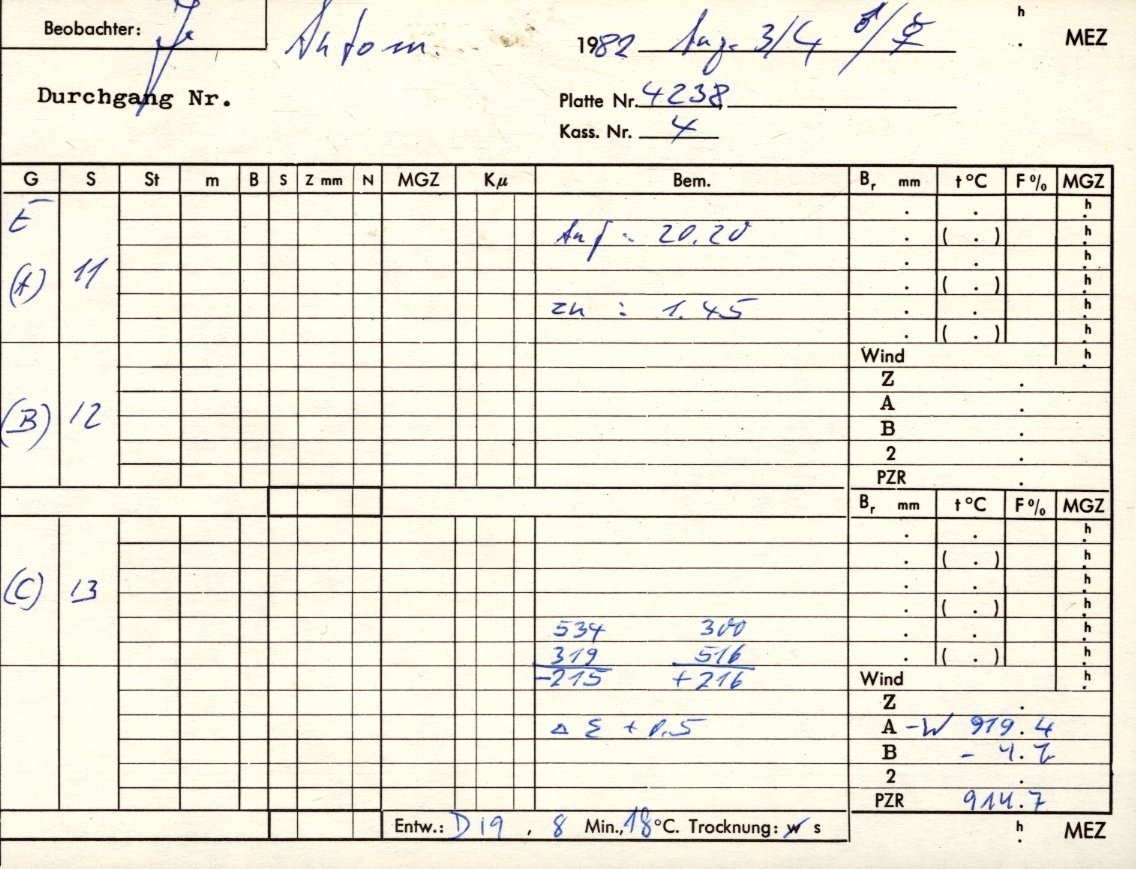 Beobachter: Je Autom. 1982 Aug. 3/4 ♂/☿ h . MEZ
Durchgang Nr.
Platte Nr. 4238
Kass. Nr. 4
G S St m B S Z mm N MGZ Kμ Bem. Br mm t °C F% MGZ
. . h
E Auf = 20.20 . ( . ) h
. . h
(A) 11 . ( . ) h
zu : 1.45 . . h
. ( . ) h
Wind h
Z .
A .
(B) 12 B .
2 .
PZR .
Br mm t °C F% MGZ
. . h
. ( . ) h
(C) 13 . . h
. ( . ) h
534 300 . . h
319 516 . ( . ) h
-215 +216 Wind h
Z .
Δ Σ + 0.5 A -W 919.4
B
2 .
PZR 914.7
Entw.: D19, 8 Min., 18 °C. Trocknung: w s h . MEZ